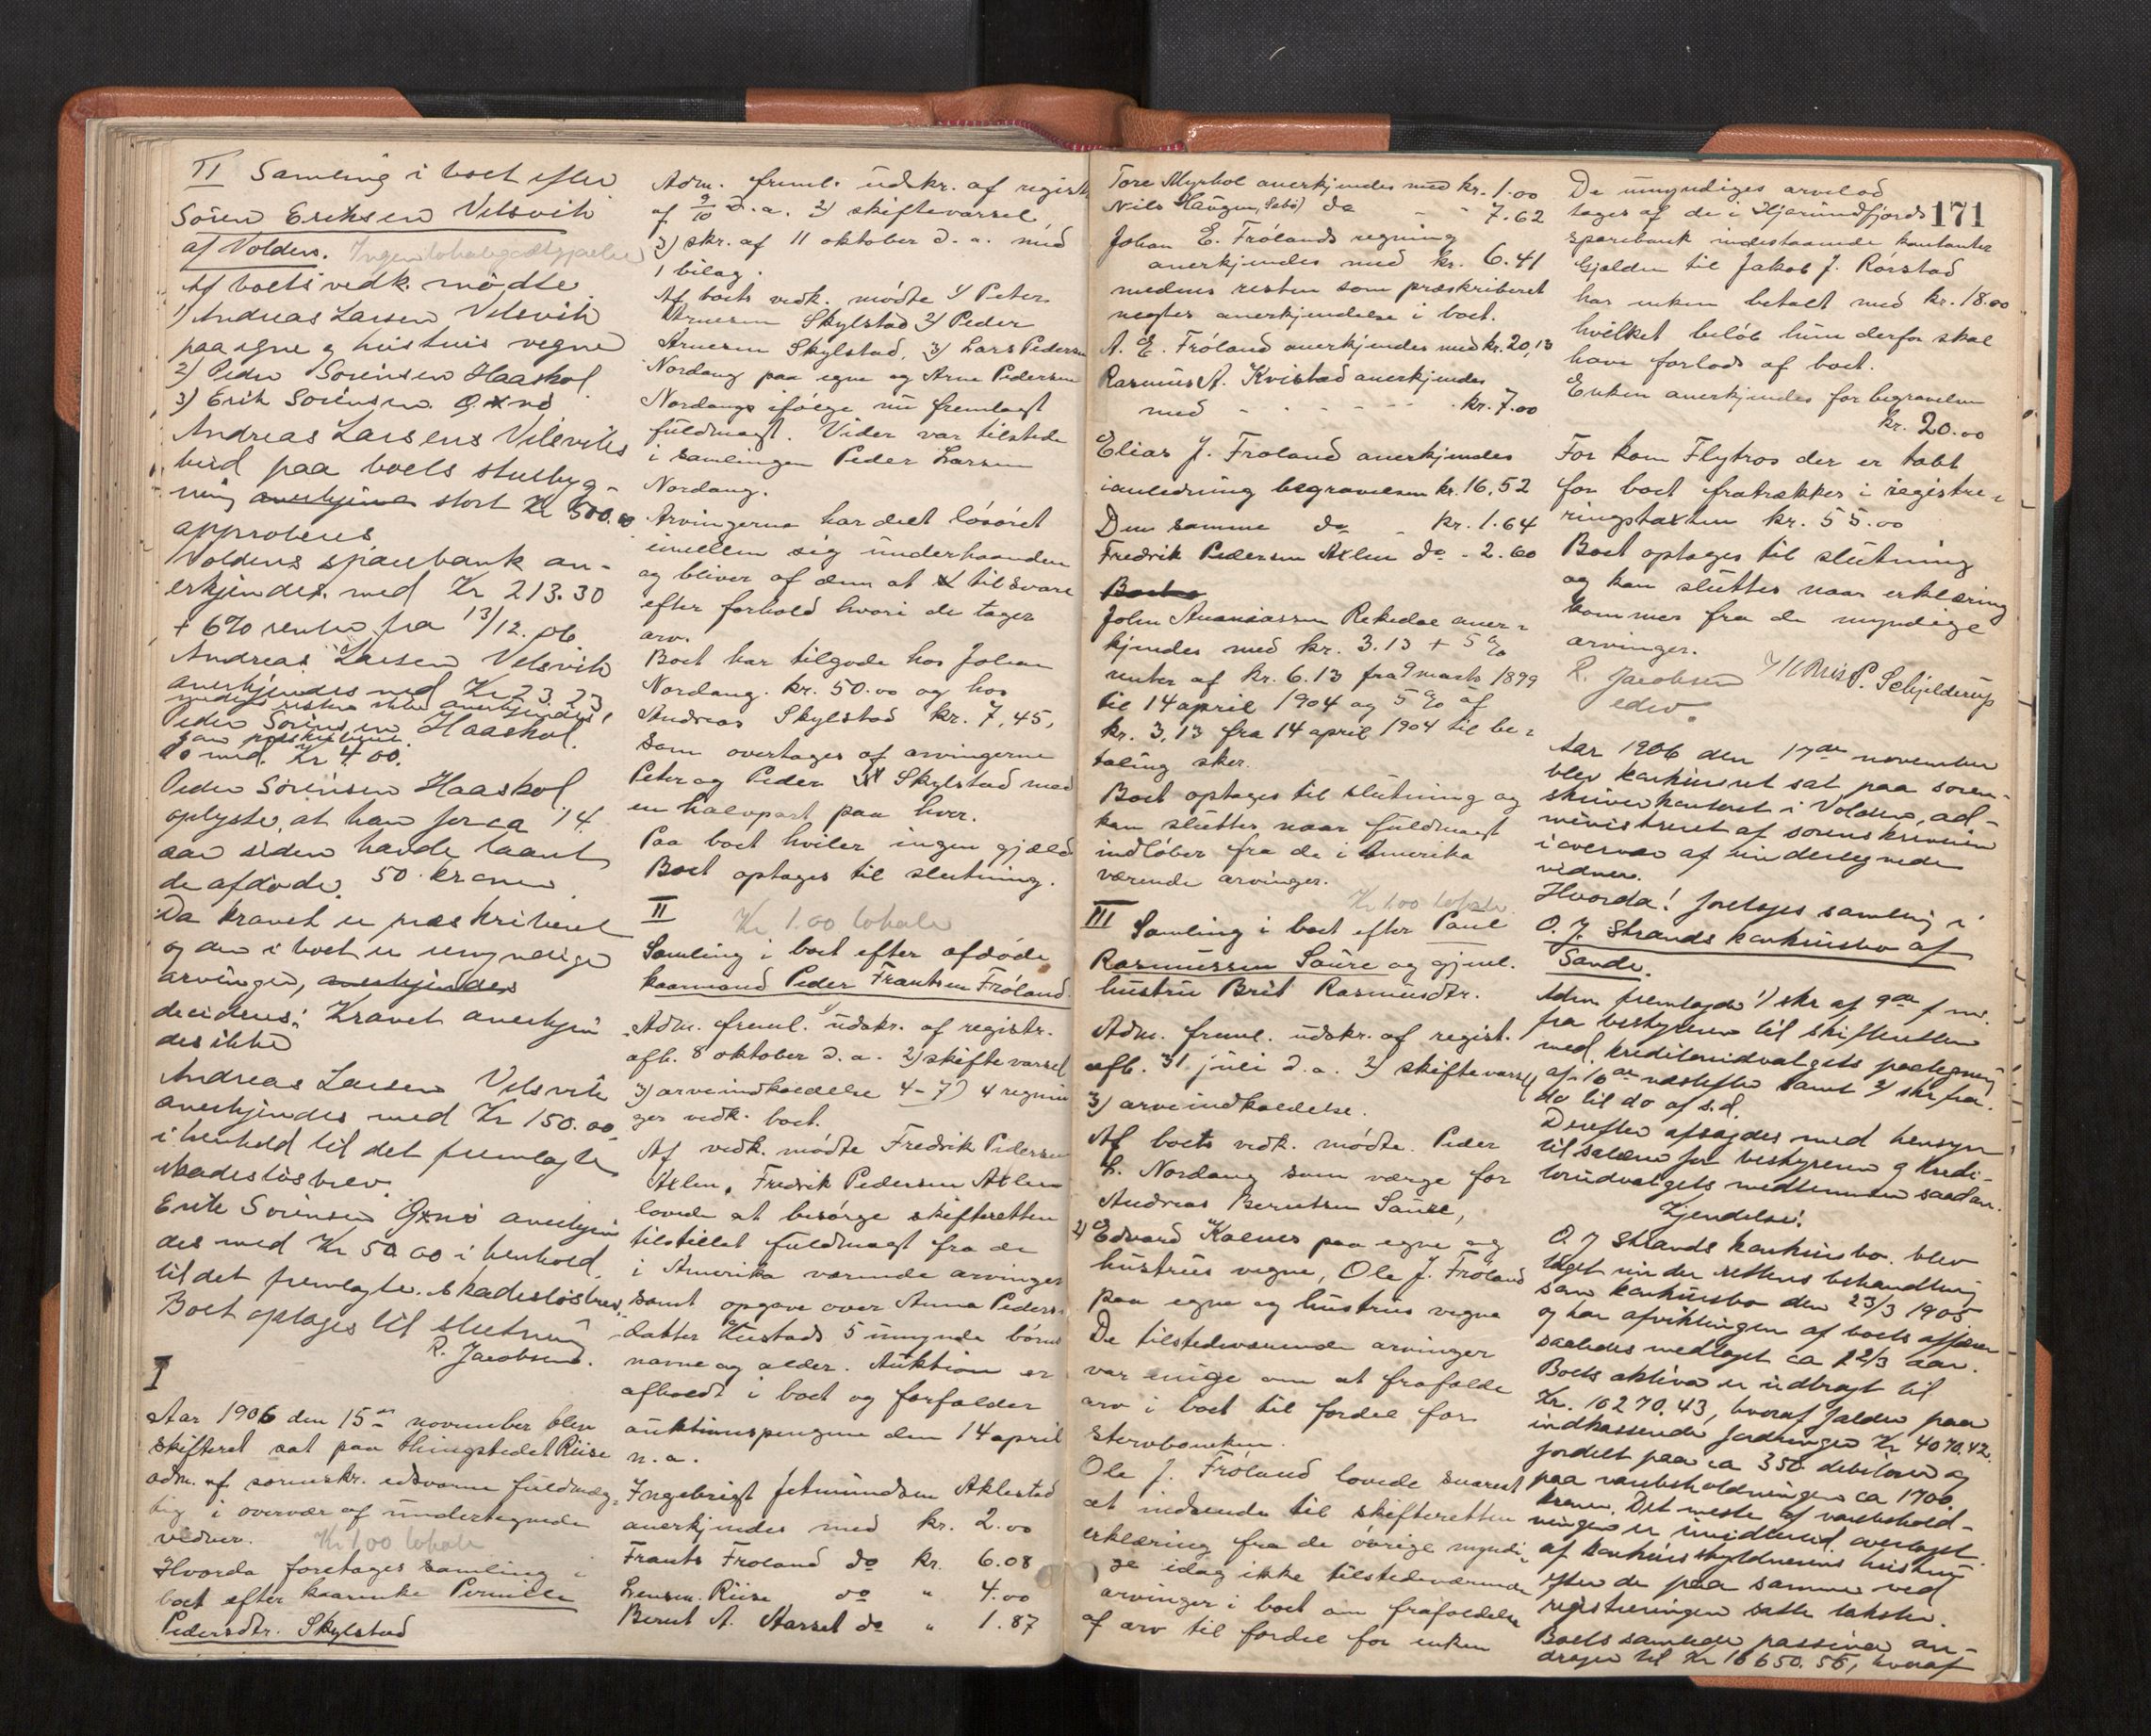 VI Samling i boet efter
Sören Eriksen Velsvik
af Volden. Ingen lokalegodtgjørelse
Af boets vedk. mödte
1) Andreas Larsen Velsvik
paa egne og hustrus vegne
2) Peder Sörensen Haaskol
3) Erik Sörensen
Andreas Larsens Velsviks
bud paa boets stuebyg-
ning anerkjende stort Kr 500.00
approberes
Voldens sparebank an-
erkjendes med Kr 213.30
+ 6% renter fra 13/12.06
Andreas Larsen Velsvik
anerkjendes med Kr 23.23
medens resten ikke anerkjendes,
Peder Sörensen Haaskol.
som præskriberet.
do med. Kr 4.00.
Peder Sörensen Haaskol
oplyste, at han for ca 14
aar siden havde laant
de afdöde 50 kroner
Da kravet er præskriberet
og der i boet er umyndige
arvinger, anerkjendes
decideres: Kravet anerkjen
des ikke
Andreas Larsen Velsvik
anerkjendes med Kr 150.00
i henhold til det fremlagte
skadeslösbrev.
Erik Sörensen anerkjen
des med Kr 50.00 i henhold
til det fremlagte skadeslösbrev.
Boet optages til slutning
R. Jacobsen.
I
Aar 1906 den 15de november blev
skifteret sat paa thingstedet Riise
adm. af sorenskr. edsvorne fuldmæg-
tig i overvær af undertegnede
vidner. Kr 1.00 lokale
Hvorda foretages samling i
boet efter kaarenke Pernille
Pedersdtr. Skylstad
Adm. freml. udskr. af registr
af 9/10 d.a. 2) skiftevarsel
3) skr. af 11 oktober d.a. med
1 bilag.
Af boets vedk. mödte 1) Peter
Arnesen Skylstad 2) Peder
Arnesen Skylstad, 3) Lars Pedersen
Nordang paa egne og Arne Pedersen
Nordangs ifölge nu fremlagt
fuldmagt. Vider var tilstede
i samlingen Peder Larsen
Nordang.
Arvingerne har delt lösöret
imellem sig underhaanden
og bliver af dem at tilsvare
efter forhold hvori de tager
arv.
Boet har tilgode hos Johan
Nordang kr. 50.00 og hos
Andreas Skylstad kr. 7,45,
som overtages af arvingerne
Peter og Peder Skylstad med
en halvpart paa hver.
Paa boet hviler ingen gjæld
Boet optages til slutning.
II Kr 1.00 lokale
Samling i boet efter afdöde
kaarmand Peder Frantsen Fröland.
Adm. freml. 1) udskr. af registr.
afh. 8 oktober d.a. 2) skiftevarsel
3) arveindkaldelse 4-7) 4 regnin
ger vedk. boet.
Af vedk. mödte Fredrik Pedersen
Axlen. Fredrik Pedersen Axlen
lovede at besörge skifteretten
tilstillet fuldmagt fra de
i Amerika værende arvinger
samt opgave over Anna Peders-
datter Hustads 5 umynde börns
navne og alder. Auktion er
afholdt i boet og forfalder
auktionspengene den 14 april
n.a.
Ingebrigt Jetmundsen Aklestad
anerkjendes med kr. 2.00
Frants Froland do kr. 6.08
Lensm. Riise do " 4.00
Bernt A. Aarset do " 1.87
171
Tore Myrhol anerkjendes med kr. 1.00
Nils Haugen, (Sæbö) do - - 7.62
Johan E. Frölands regning
anerkjendes med kr. 6.41
medens resten som præskriberet
negtes anerkjendelse i boet.
A. E. Fröland anerkjendes med kr. 20,13
Rasmus A. Kvistad anerkjendes
med - - - - - - kr. 7.00
Elias J. Froland anerkjendes
i anledning begravelsen kr. 16,52
Den samme do - kr. 1.64
Fredrik Pedersen Axlen do - 2.60
Boets
John Ananiassen Rekkedal aner-
kjendes med kr. 3.13 + 5%
renter af kr. 6.13 fra 9 marts 1899
til 14 april 1904 og 5% af
kr. 3,13 fra 14 april 1904 til be-
taling sker.
Boet optages til slutning og
kan sluttes naar fuldmagt
indlöber fra de i Amerika
værende arvinger.
Kr 1.00 lokale
III Samling i boet efter Paul
Rasmussen Saure og gjenl.
hustru Brit Rasmusdtr.
Adm. freml. udskr. af regist.
afh. 31 juli d.a. 2) skiftevarsel
3) arveindkaldelse.
Af boets vedk. mödte Peder
L. Nordang som værge for
Andreas Berntsen Saure,
2) Edvard Kolnes paa egne og
hustrus vegne, Ole J. Fröland
paa egne og hustrus vegne
De tilstedeværende arvinger
var enige om at frafalde
arv i boet til fordel for
stervboenken.
Ole J. Fröland lovede snarest
at indsende til skifteretten
erklæring fra de övrige myndi-
ge idag ikke tilstedeværende
arvinger i boet om frafaldelse
af arv til fordel for enken
De umyndiges arvelod
tages af de i Hjörundfjords
sparebank indestaaende kontanter
Gjælden til Jakob J. Rörstad
har enken betalt med kr. 18.00
hvilket belöb hun derfor skal
have forlods af boet.
Enken anerkjendes for begravelsen
kr. 20.00
For kom Flytros der er tabt
for boet fratrækkes i registre-
ringstaxten kr. 55.00
Boet optages til slutning
og kan sluttes naar erklæring
kommer fra de myndige
arvinger.
R. Jacobsen P. Schjelderup
edsv.
Aar 1906 den 17de november
blev konkursret sat paa soren-
skriverkontoret i Volden, ad-
ministreret af sorenskriveren
i overvær af undertegnede
vidner.
Hvorda! foretoges samling i
O. J. Strands konkursbo af
Sande.
Adm fremlagde 1) skr af 9de f. m.
fra bestyreren til skifteretten
med kreditorudvalgets paategning
af 10de næstefter samt 2) skr fra
do til do af s.d.
Derefter afsagdes med hensyn
til salær for bestyreren og kredi-
torudvalgets medlemmer saadan
Kjendelse:
O. J Strands konkursbo blev
taget under rettens behandling
som konkursbo den 23/3 1905
og har afviklingen af boets affærer
saaledes medtaget ca 1 2/3 aar.
Boets aktiva er udbragt til
Kr. 10270.43, hvoraf falder paa
indkasserede fordringer Kr 4070.42.
fordelt paa ca 350 debitorer og
paa varebeholdningen ca 1700
kroner. Det meste af varebehold-
ningen er imidlertid overtaget
af konkursskyldnerens hustru
efter de paa samme ved
registreringen satte takster.
Boets samlede passiva an-
drager til Kr 16650.55, hvoraf